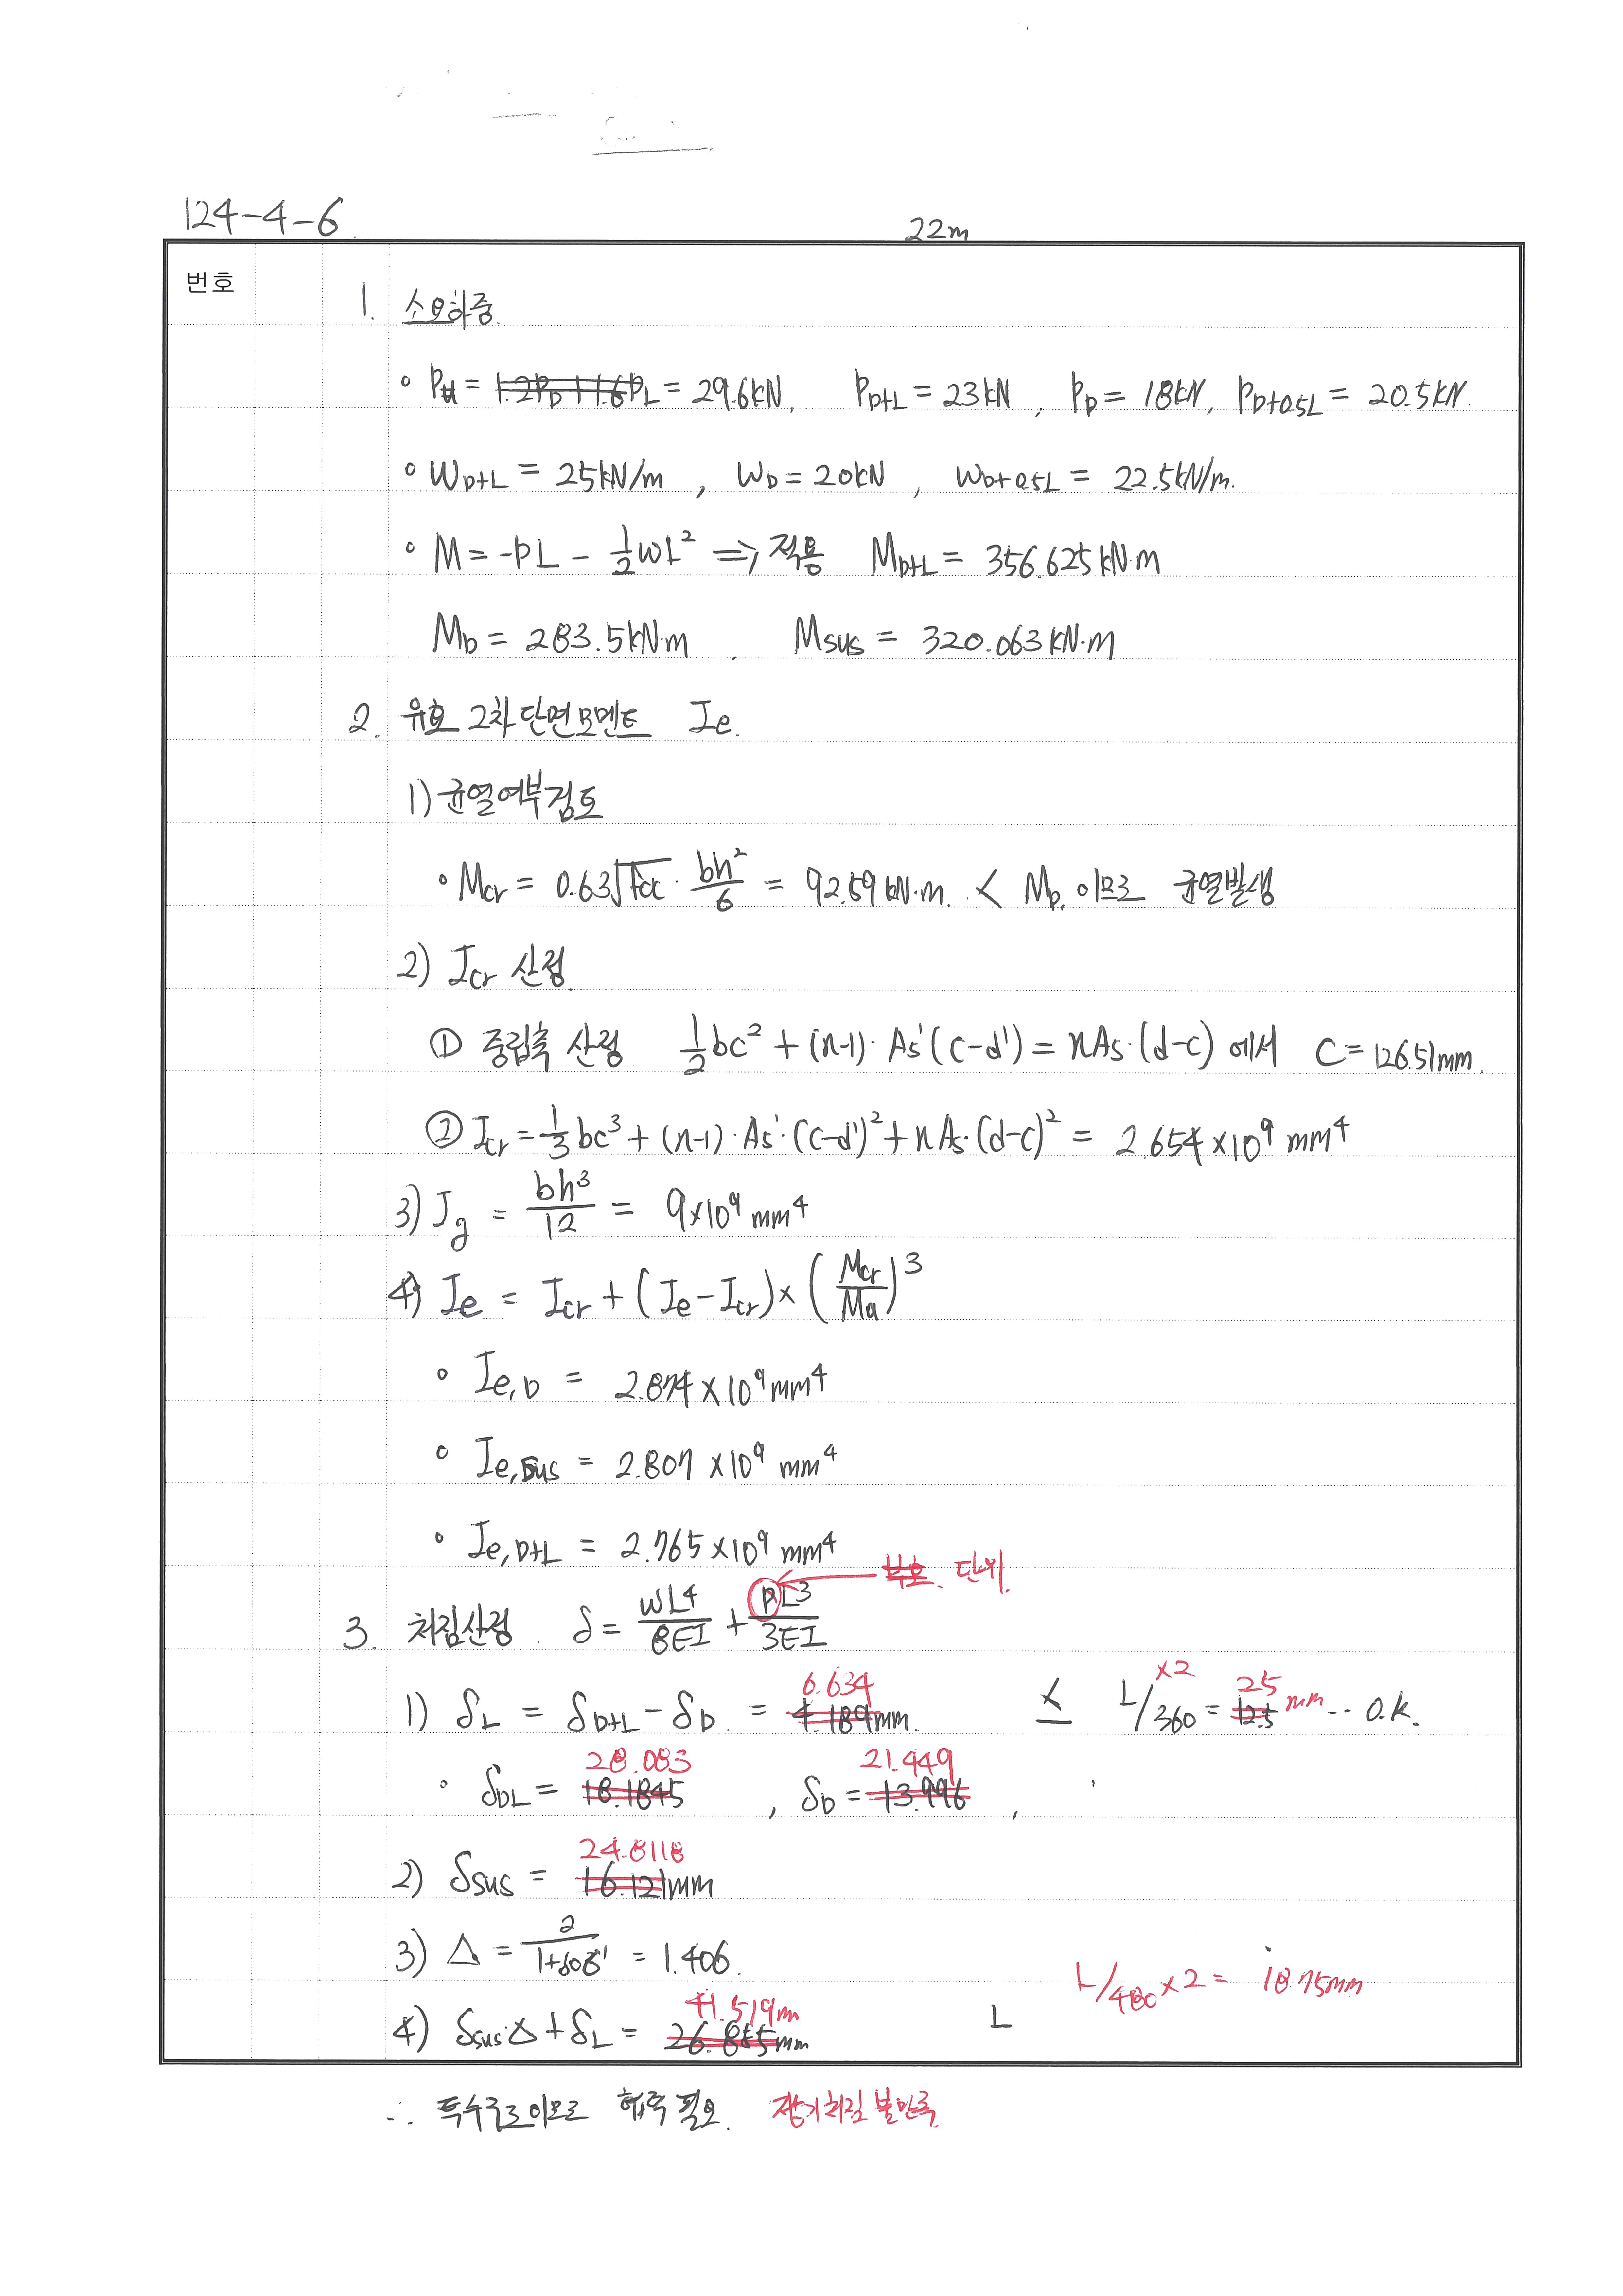 124-4-6
22m
번호
1. 소요하중
∘ Pu = 1.2PD+1.6PL = 29.6kN, PD+L = 23kN, PD = 18kN, PD+0.5L = 20.5kN.
∘ WD+L = 25kN/m, WD = 20kN, WD+0.5L = 22.5kN/m.
∘ M = -PL - 1/2 WL² ⇒ 적용 MD+L = 356.625kN·m
MD = 283.5kN·m, Msus = 320.063kN·m
2. 유효 2차 단면모멘트 Ie.
1) 균열여부검토
∘ Mcr = 0.63√fck · bh²/6 = 92.59kN·m. < MD, 이므로 균열발생
2) Icr 산정
① 중립축 산정 1/2 bc² + (n-1)·As'(c-d') = nAs·(d-c) 에서 C = 126.51mm.
② Icr = 1/3 bc³ + (n-1)·As'·(c-d')² + nAs·(d-c)² = 2.654×10⁹ mm⁴
3) Ig = bh³/12 = 9×10⁹ mm⁴
4) Ie = Icr + (Ie - Icr) × (Mcr/Ma)³
∘ Ie,D = 2.874×10⁹mm⁴
∘ Ie,sus = 2.807×10⁹ mm⁴
∘ Ie,D+L = 2.765×10⁹ mm⁴
부호. 단위.
3. 처짐산정. δ = WL⁴/8EI + PL³/3EI
6.634 ×2 25
1) δL = δD+L - δD = 4.189mm. ≤ L/360 = 12.5 mm ··· O.K.
28.083 21.449
∘ δDL = 18.1845, δD = 13.996,
24.8118
2) δsus = 16.121mm
3) Δ = 2/1+50ρ' = 1.406.
L/480 ×2 = 18.75mm
41.519mm
4) δsus·Δ + δL = 26.855mm L
∴ 특수구조이므로 필요. 장기처짐 불만족